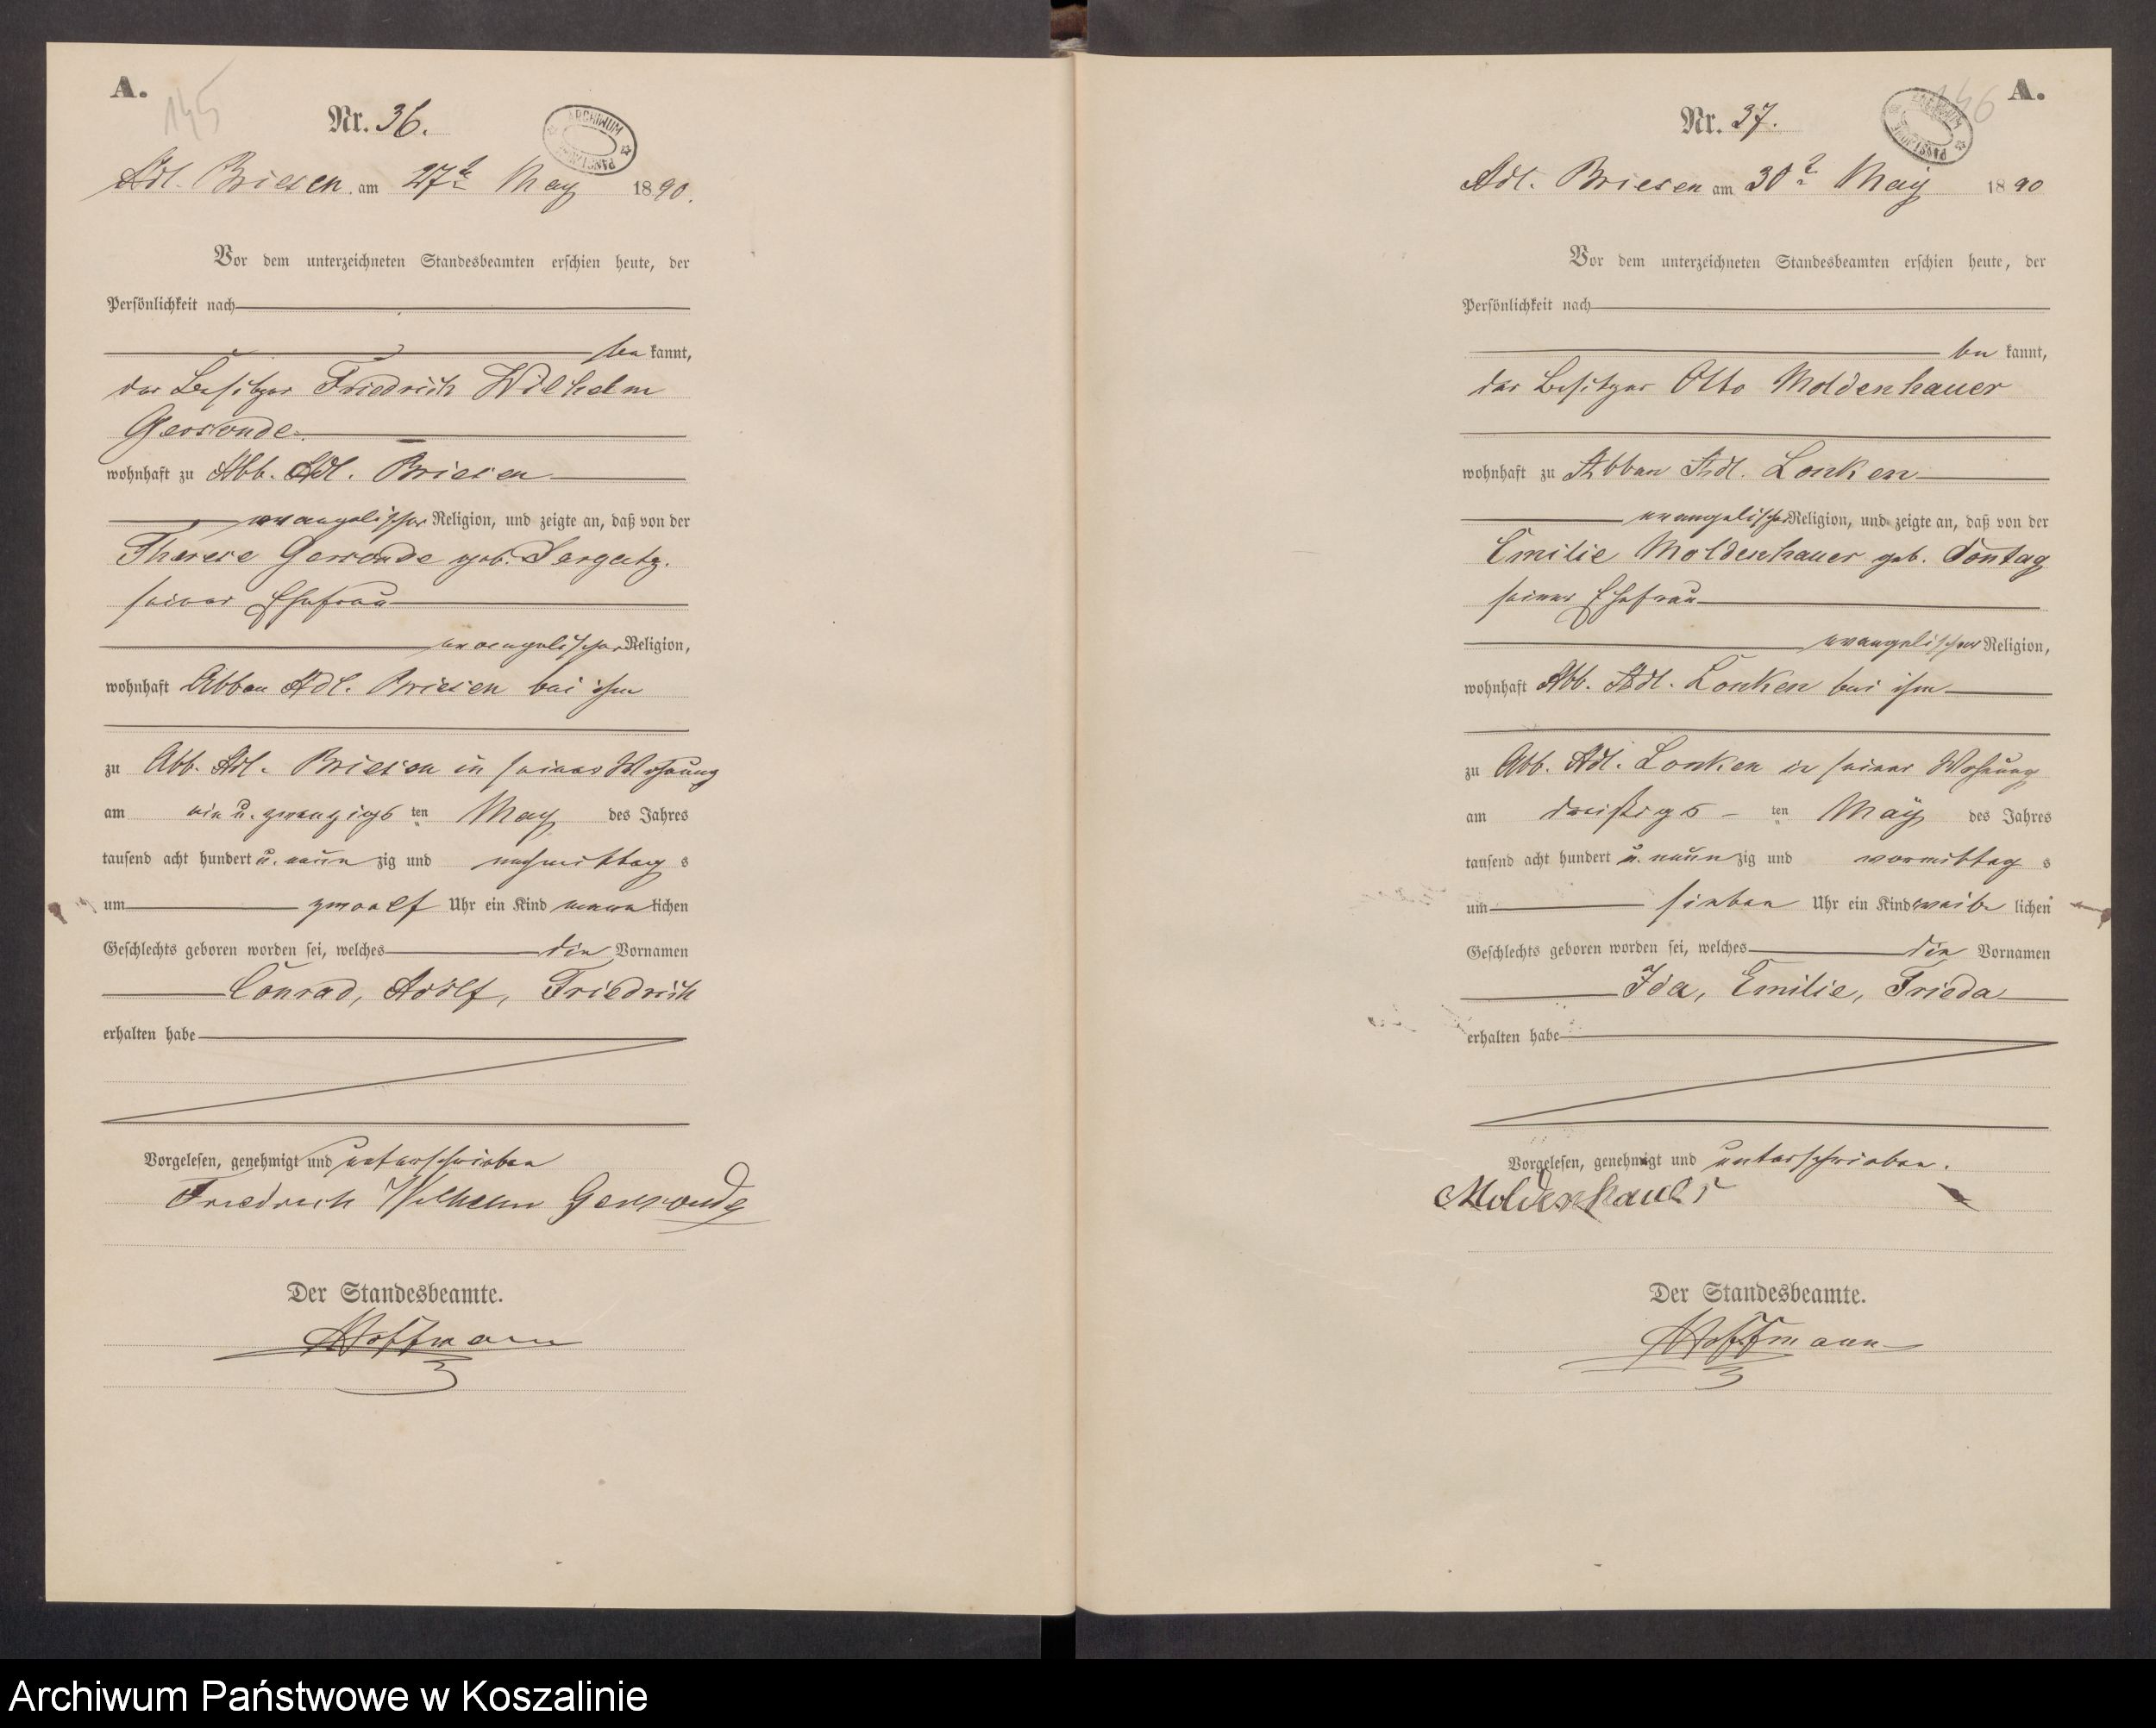 A.
145
Nr. 36.
ARCHIWUM PAŃSTWOWE
Adl. Briesen am 27t May 1890.
Vor dem unterzeichneten Standesbeamten erschien heute, der
Persönlichkeit nach
be kannt,
der Besitzer Friedrich Wilhelm
Gersonde
wohnhaft zu Abb. Adl. Briesen
evangelischer Religion, und zeigte an, daß von der
Therese Gersonde geb.
seiner Ehefrau
evangelischer Religion,
wohnhaft Abbau Adl. Briesen bei ihm
zu Abb. Adl. Briesen in seiner Wohnung
am ein u. zwanzigs ten May des Jahres
tausend acht hundert u. neun zig und nachmittag s
um zwoelf Uhr ein Kind maenn lichen
Geschlechts geboren worden sei, welches die Vornamen
Conrad, Adolf, Friedrich
erhalten habe
Vorgelesen, genehmigt und unterschrieben
Friedrich Wilhelm Gersonde
Der Standesbeamte.
Hoffmann
A.
146
Nr. 37.
ARCHIWUM PAŃSTWOWE
Adl. Briesen am 30t May 1890
Vor dem unterzeichneten Standesbeamten erschien heute, der
Persönlichkeit nach
be kannt,
der Besitzer Otto Moldenhauer
wohnhaft zu Abbau Adl. Lonken
evangelischer Religion, und zeigte an, daß von der
Emilie Moldenhauer geb. Sontag
seiner Ehefrau
evangelischer Religion,
wohnhaft Abb. Adl. Lonken bei ihm
zu Abb. Adl. Lonken in seiner Wohnung
am dreißigs ten May des Jahres
tausend acht hundert u. neun zig und vormittag s
um sieben Uhr ein Kind weib lichen
Geschlechts geboren worden sei, welches die Vornamen
Ida, Emilie, Frieda
erhalten habe
Vorgelesen, genehmigt und unterschrieben.
Moldenhauer
Der Standesbeamte.
Hoffmann
Archiwum Państwowe w Koszalinie